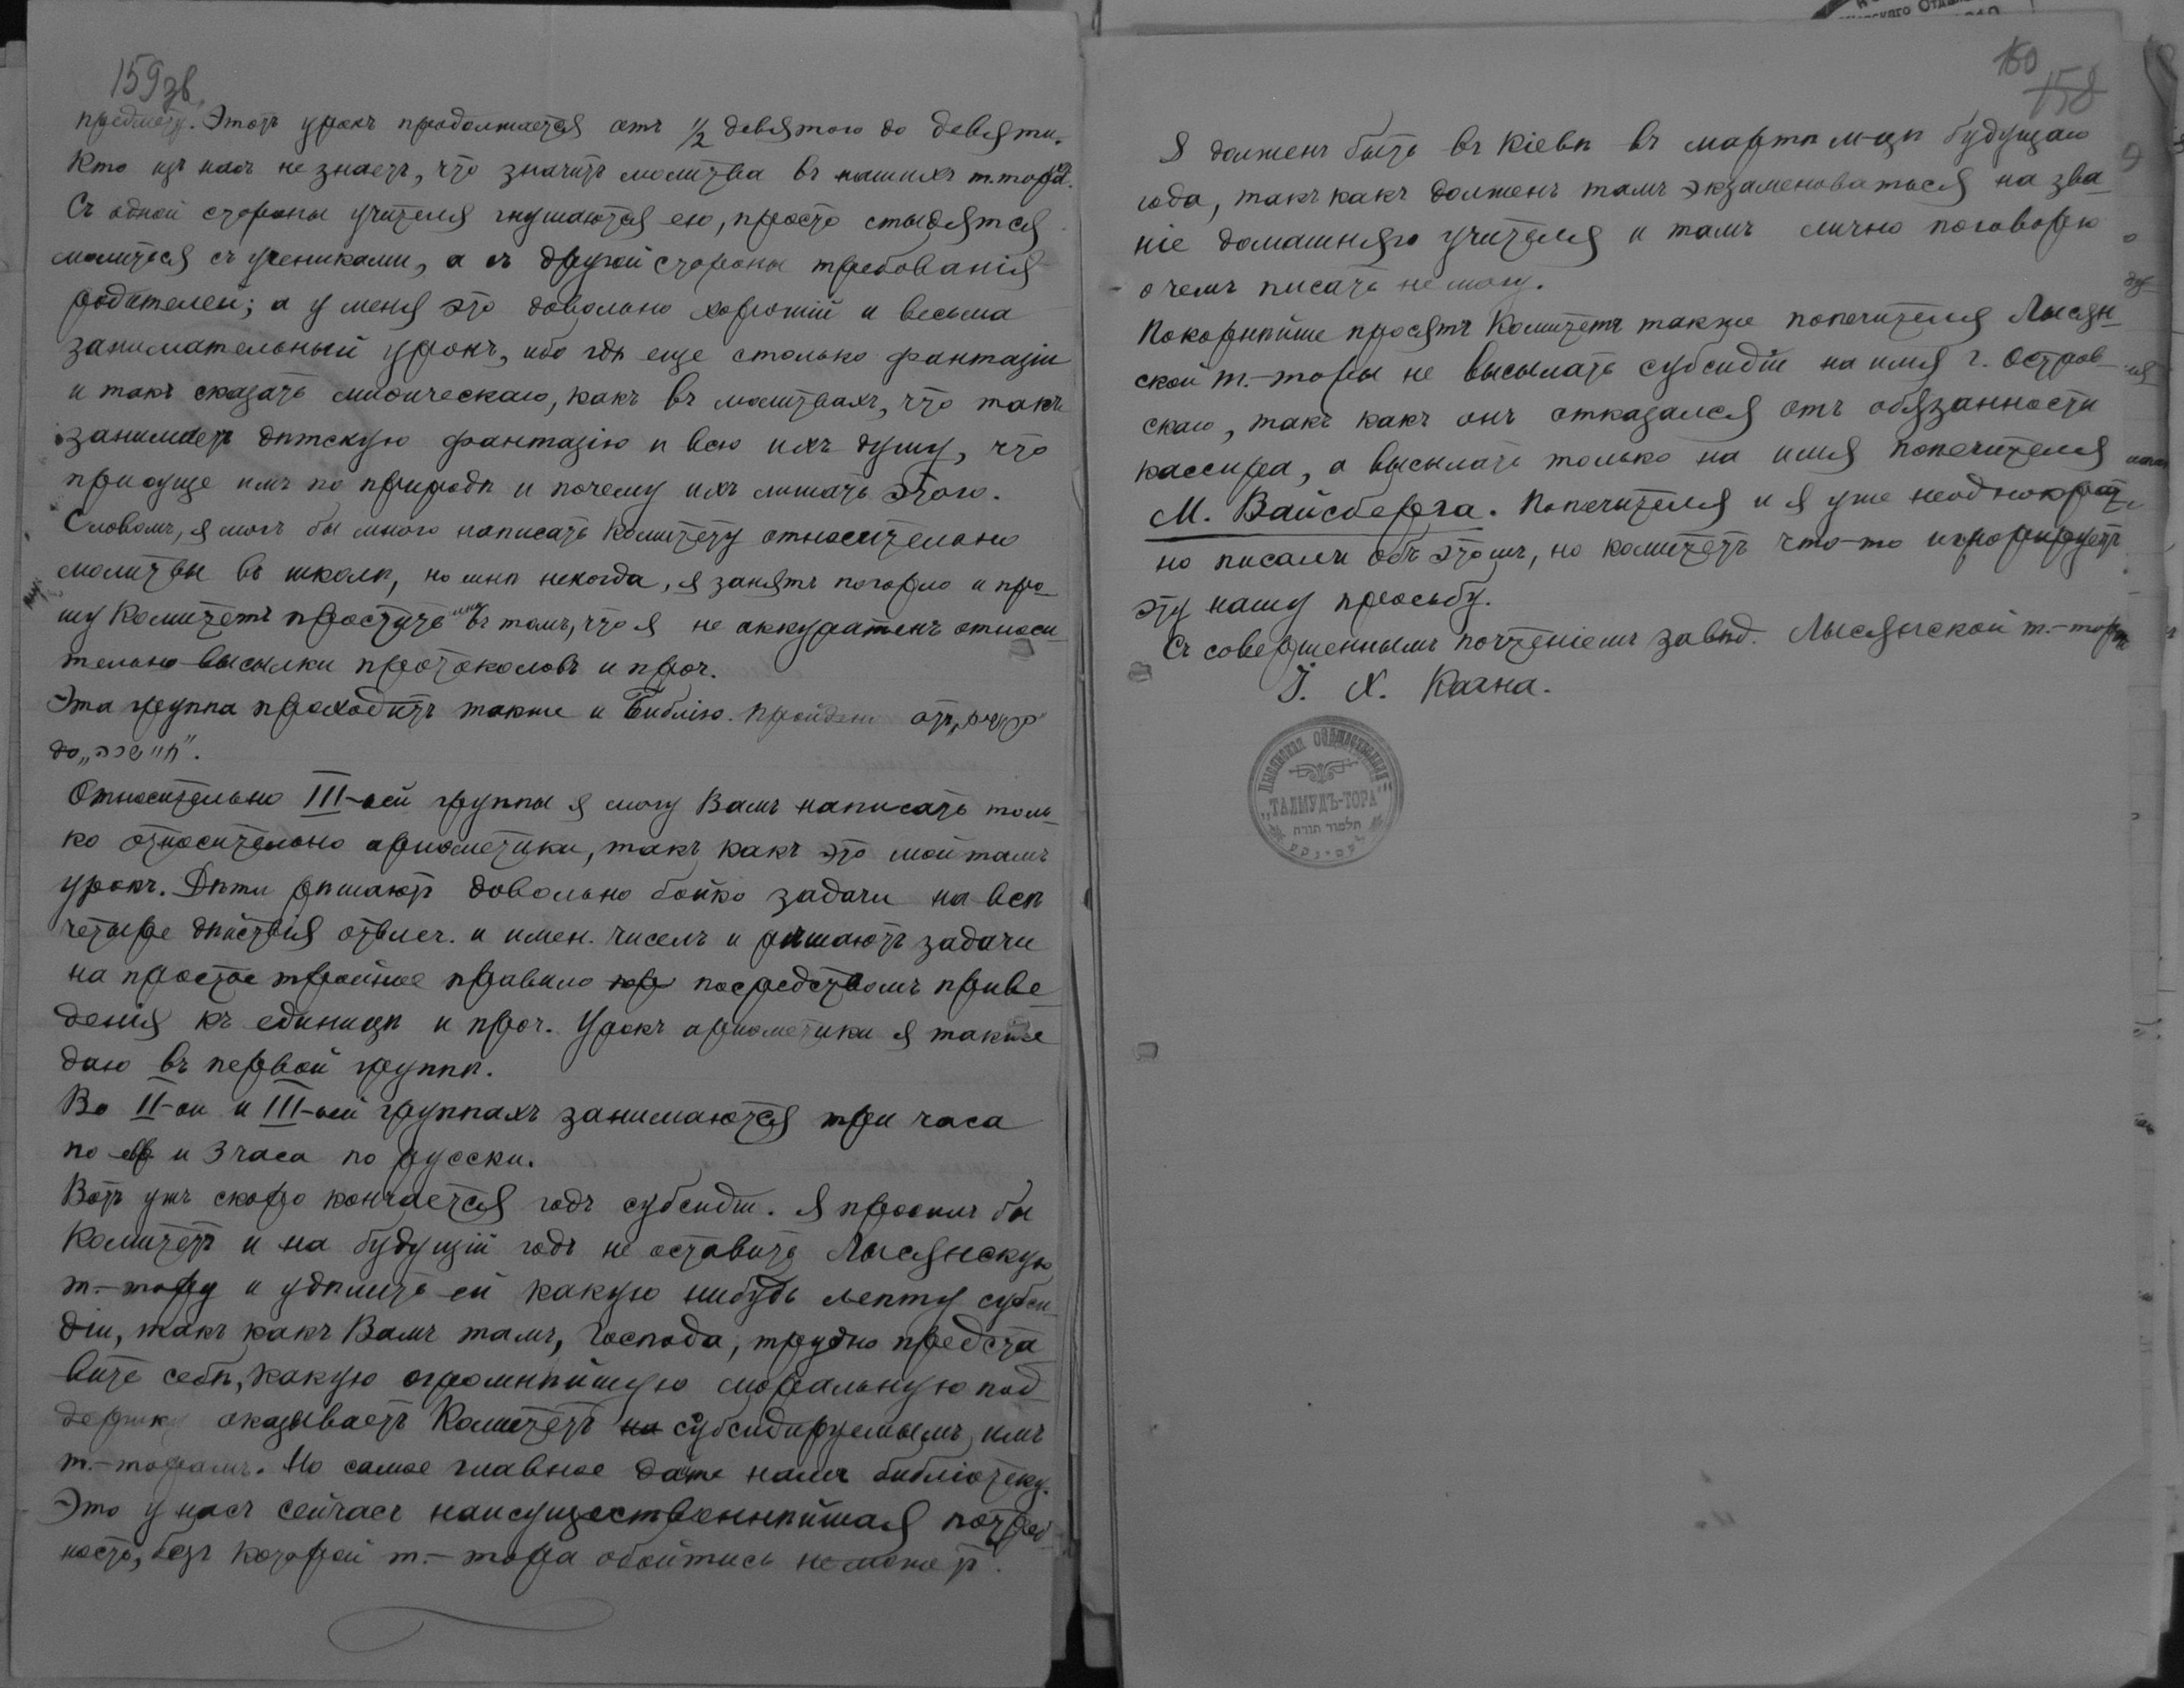 159 зв.
предмету. Этотъ урокъ продолжается отъ 1/2 девятого до девяти.
Кто изъ насъ не знаетъ, что значитъ молитва въ нашихъ т. тора.
Съ одной стороны учителя гнушаются ею, просто стыдятся
молиться съ учениками, а съ другой стороны требованія
родителей; а у меня это довольно хорошій и весьма
занимательный урокъ, ибо гдѣ еще столько фантазіи
и такъ сказать миѳическаго, какъ въ молитвахъ, что такъ
занимаетъ дѣтскую фантазію и всю ихъ душу, что
присуще имъ по природѣ и почему ихъ лишать этого.
Словомъ, я могъ бы много написать Комитету относительно
молитвы въ школѣ, но мнѣ некогда, я занятъ по горло и про-
шу Комитетъ простить мнѣ въ томъ, что я не аккуратенъ относи
тельно высылки протоколовъ и проч.
Эта группа проходитъ также и Библію. Пройдено отъ
до „חיי שרה".
Относительно III-ьей группы я могу Вамъ написать толь-
ко относительно ариѳметики, такъ какъ это мой тамъ
урокъ. Дѣти рѣшаютъ довольно бойко задачи на всѣ
четыре дѣйствія отвлеч. и имен. чиселъ и рѣшаютъ задачи
на простое тройное правило посредствомъ приве
денія къ единицѣ и проч. Урокъ ариѳметики я также
даю въ первой группѣ.
Во II-ой и III-ьей группахъ занимаются три часа
по евр и 3 часа по русски.
Вотъ ужъ скоро кончается годъ субсидіи. Я просилъ бы
Комитетъ и на будущій годъ не оставить Лысянскую
т.-тору и удѣлить ей какую нибудь лепту субси
діи, такъ какъ Вамъ тамъ, Господа, трудно предста
вить себѣ, какую огромнѣйшую моральную под
держку оказываетъ Комитетъ на субсидируемымъ имъ
т.-торамъ. Но самое главное дайте намъ библіотеку.
Это у насъ сейчасъ наисущественнѣйшая потреб
ность, безъ которой т.-тора обойтись не можетъ.
160
158
Я долженъ быть въ Кіевѣ въ мартѣ м-цѣ будущаго
года, такъ какъ долженъ тамъ экзаменоваться на зва
ніе домашняго учителя и тамъ лично поговорю
о чемъ писать не могу.
Покорнѣйше просятъ Комитетъ также попечителя Лысян-
ской т.-торы не высылать субсидіи на имя г. Остров-
скаго, такъ какъ онъ отказался отъ обязанности
кассира, а высылать только на имя попечителя
М. Вайсберга. Попечителя и я уже неоднократ-
но писали объ этомъ, но комитетъ что-то игнорируетъ
эту нашу просьбу.
Съ совершеннымъ почтеніемъ завѣд. Лысянской т.-торы
І. Х. Кагна.
Лысянская Общественная
„ТАЛМУДЪ-ТОРА"
תלמוד תורה